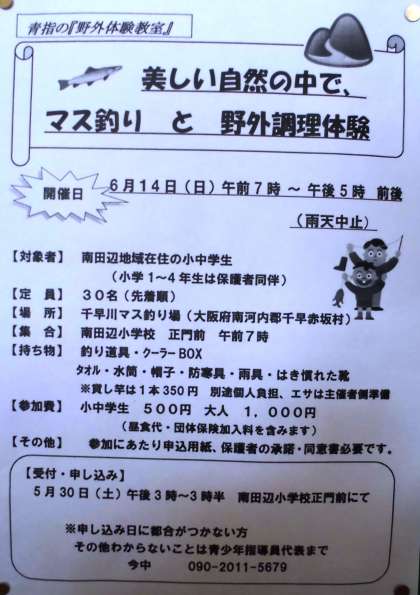 青指の『野外体験教室』
美しい自然の中で、
マス釣り　と　野外調理体験
開催日
6月14日（日）午前7時～午後5時　前後
（雨天中止）
【対象者】　南田辺地域在住の小中学生
（小学1～4年生は保護者同伴）
【定　員】　30名（先着順）
【場　所】　千早川マス釣り場（大阪府南河内郡千早赤坂村）
【集　合】　南田辺小学校　正門前　午前7時
【持ち物】　釣り道具・クーラーBOX
タオル・水筒・帽子・防寒具・雨具・はき慣れた靴
※貸し竿は1本350円　別途個人負担、エサは主催者側準備
【参加費】　小中学生　500円　大人　1,000円
（昼食代・団体保険加入料を含みます）
【その他】　参加にあたり申込用紙、保護者の承諾・同意書必要です。
【受付・申し込み】
5月30日（土）午後3時～3時半　南田辺小学校正門前にて
※申し込み日に都合がつかない方
その他わからないことは青少年指導員代表まで
今中　090-2011-5679